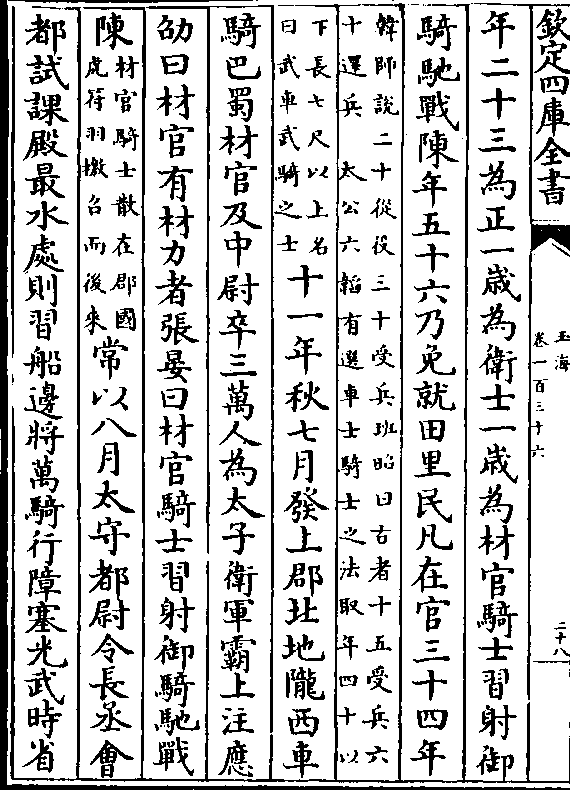 欽定四庫全書
玉海
卷一百三十六
二十八
年二十三為正一歳為衛士一歳為材官騎士習射御
騎馳戰陳年五十六乃免就田里民凡在官三十四年
韓師說二十從役三十受兵班昭曰古者十五受兵六
十選兵 太公六韜有選車士騎士之法取年四十以
下長七尺以上名
曰武車武騎之士
十一年秋七月發上郡北地隴西車
騎巴蜀材官及中尉卒三萬人為太子衛軍霸上注應
劭曰材官有材力者張晏曰材官騎士習射御騎馳戰
陳
材官騎士散在郡國
虎符羽檄召而後來
常以八月太守都尉令長丞會
都試課殿最水處則習船邊將萬騎行障塞光武時省